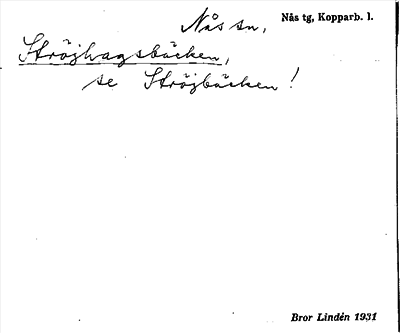 Nås sn, Nås tg, Kopparb. l.
Ströjhagsbäcken,
se Ströjbäcken!
Bror Lindén 1931